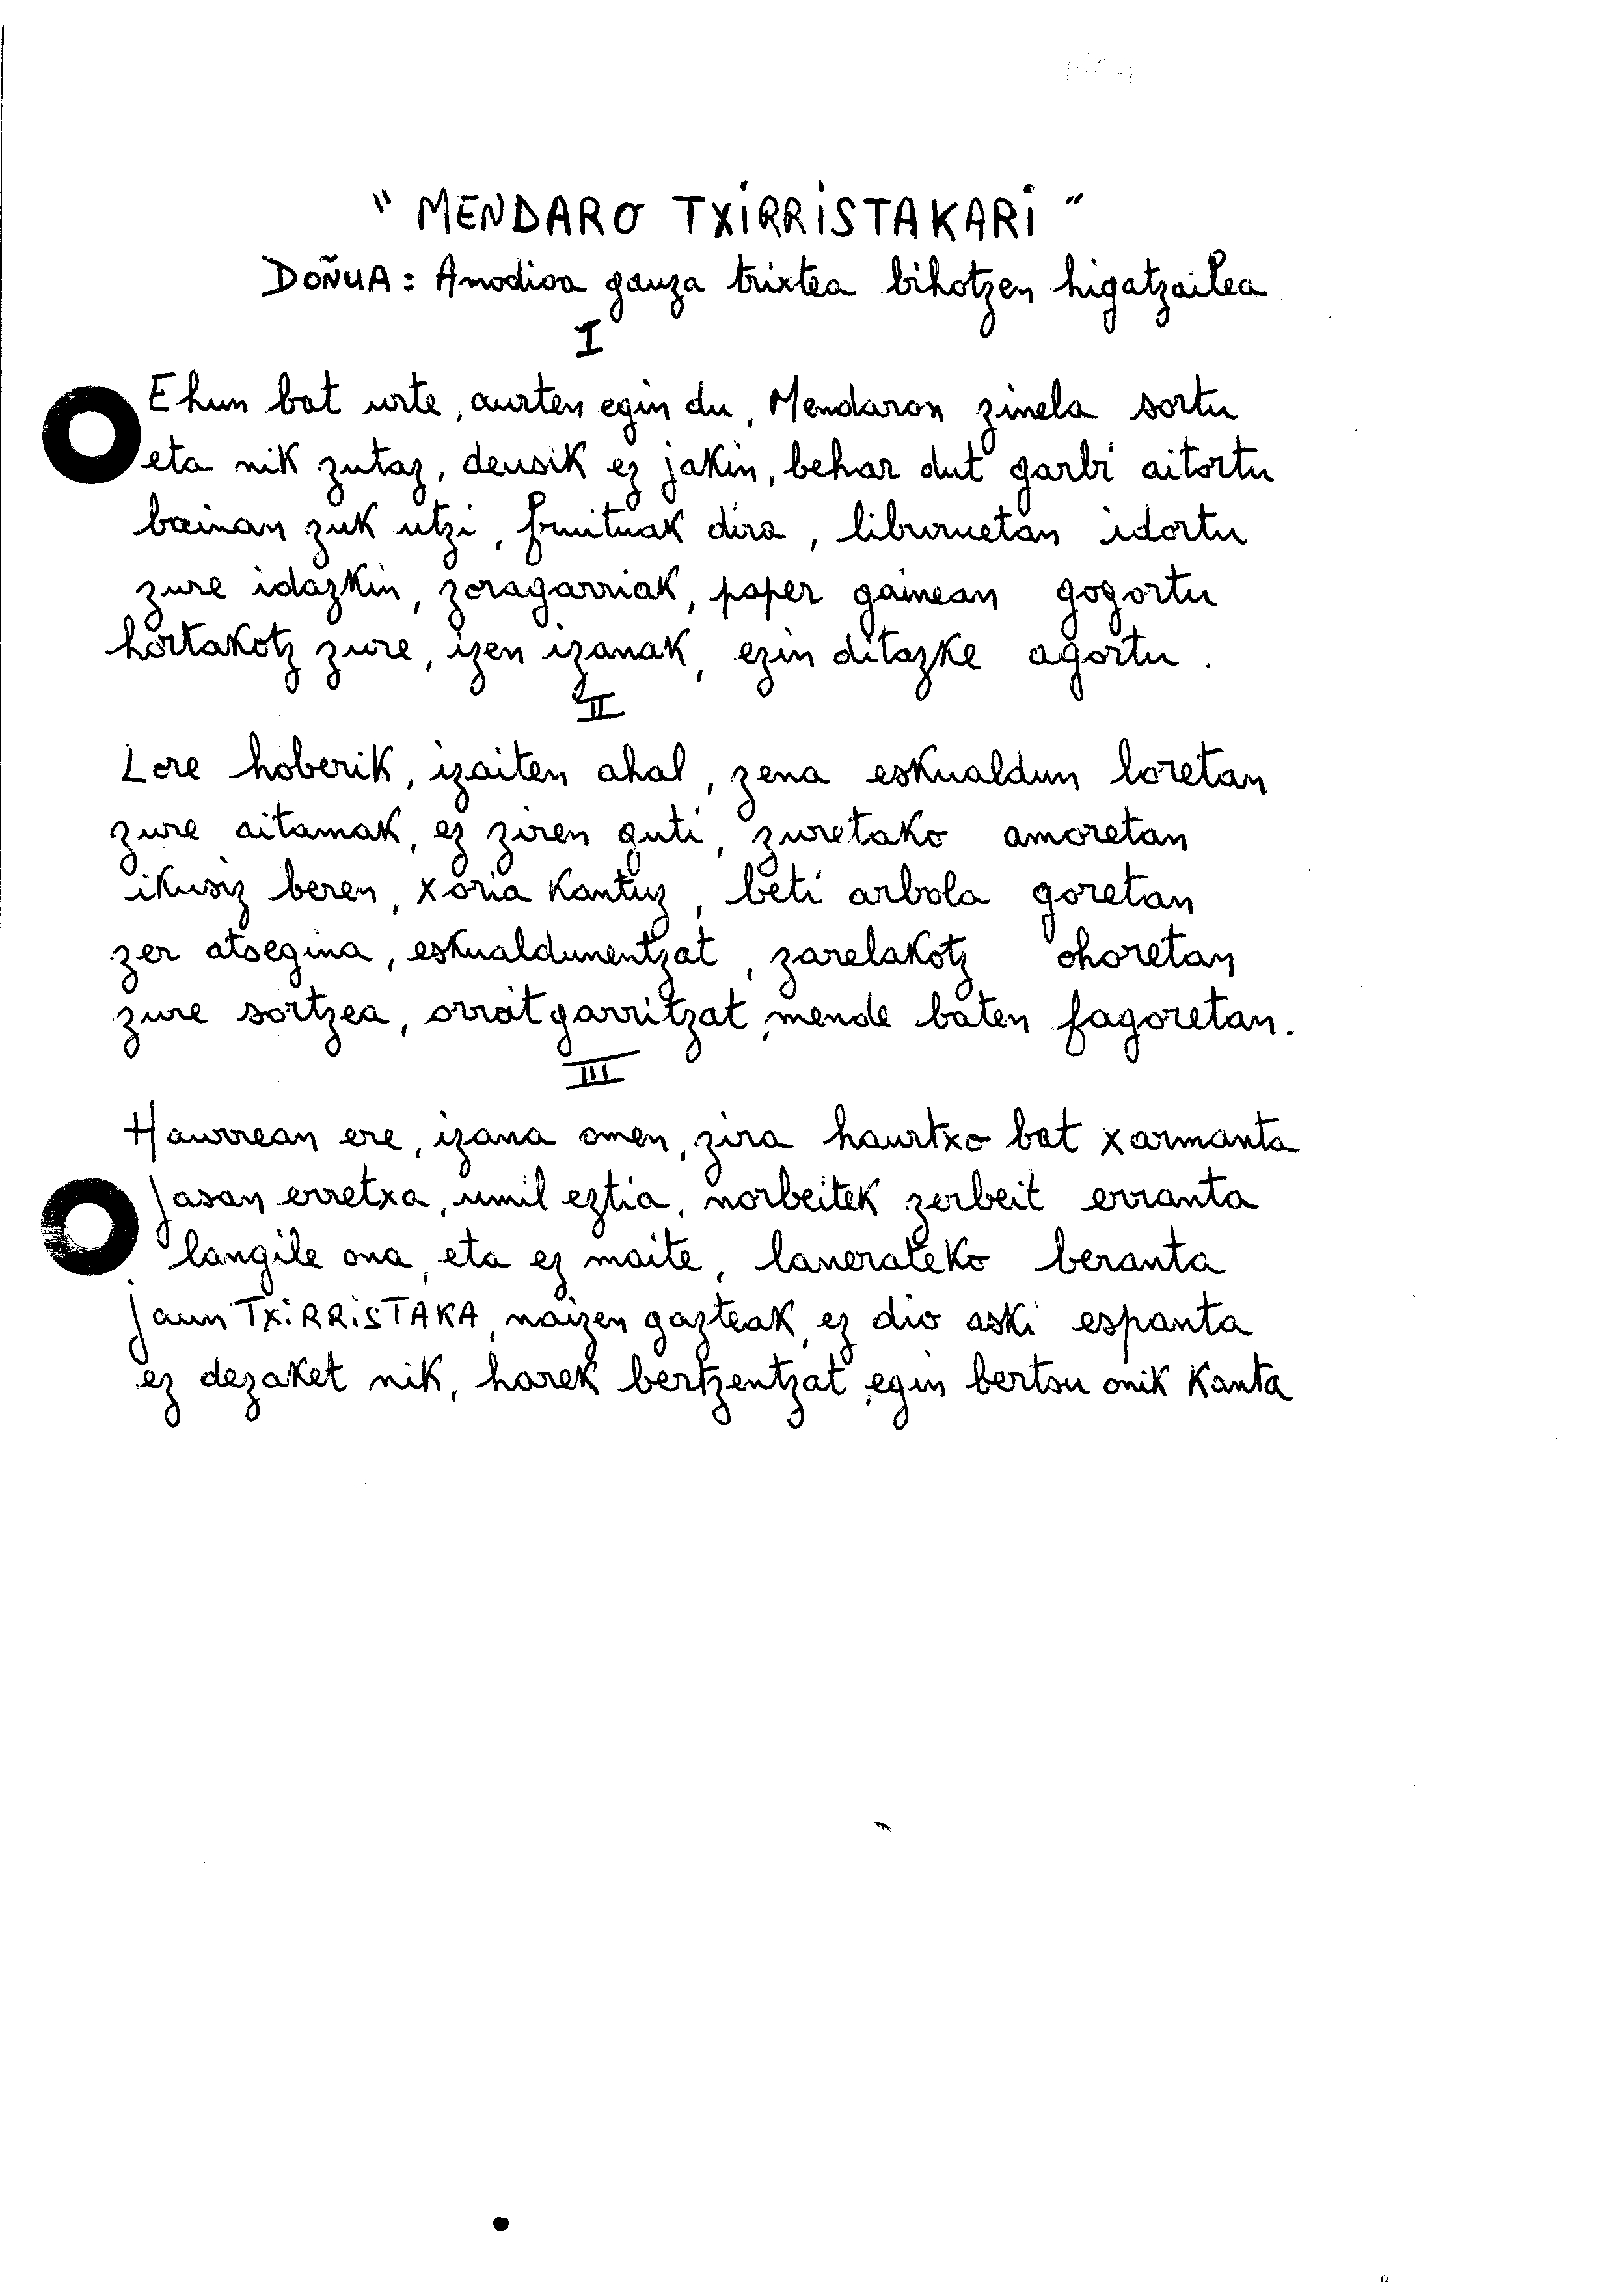 " MENDARO TXIRRISTAKARI "
DOÑUA : Amodioa gauza trixtea bihotzen higatzailea
I
Ehun bat urte, aurten egin du, Mendaron zinela sortu
eta nik zutaz, deusik ez jakin, behar dut garbi aitortu
bainan zuk utzi, fruituak dira, liburuetan idortu
zure idazkin, zoragarriak, paper gainean gogortu
hortakotz zure, izen izanak, ezin ditazke agortu.
II
Lore hoberik, izaiten ahal, zena eskualdun loretan
zure aitamak, ez ziren guti, zuretako amoretan
ikusiz beren, xoria kantuz, beti arbola goretan
zer atsegina, eskualdunentzat, zarelakotz ohoretan
zure sortzea, orroitgarritzat, mende baten fagoretan.
III
Haurrean ere, izana omen, zira haurtxo bat xarmanta
jasan erretxa, umil eztia, norbeitek zerbeit erranta
langile ona, eta ez maite, lanerateko beranta
jaun TXIRRISTAKA, naizen gazteak, ez dio aski espanta
ez dezaket nik, harek bertzentzat, egin bertsu onik kanta